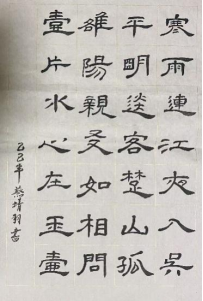 寒雨連江夜入吳
平明送客楚山孤
雒陽親友如相問
壹片氷心在玉壺
乙巳年 靖羽書